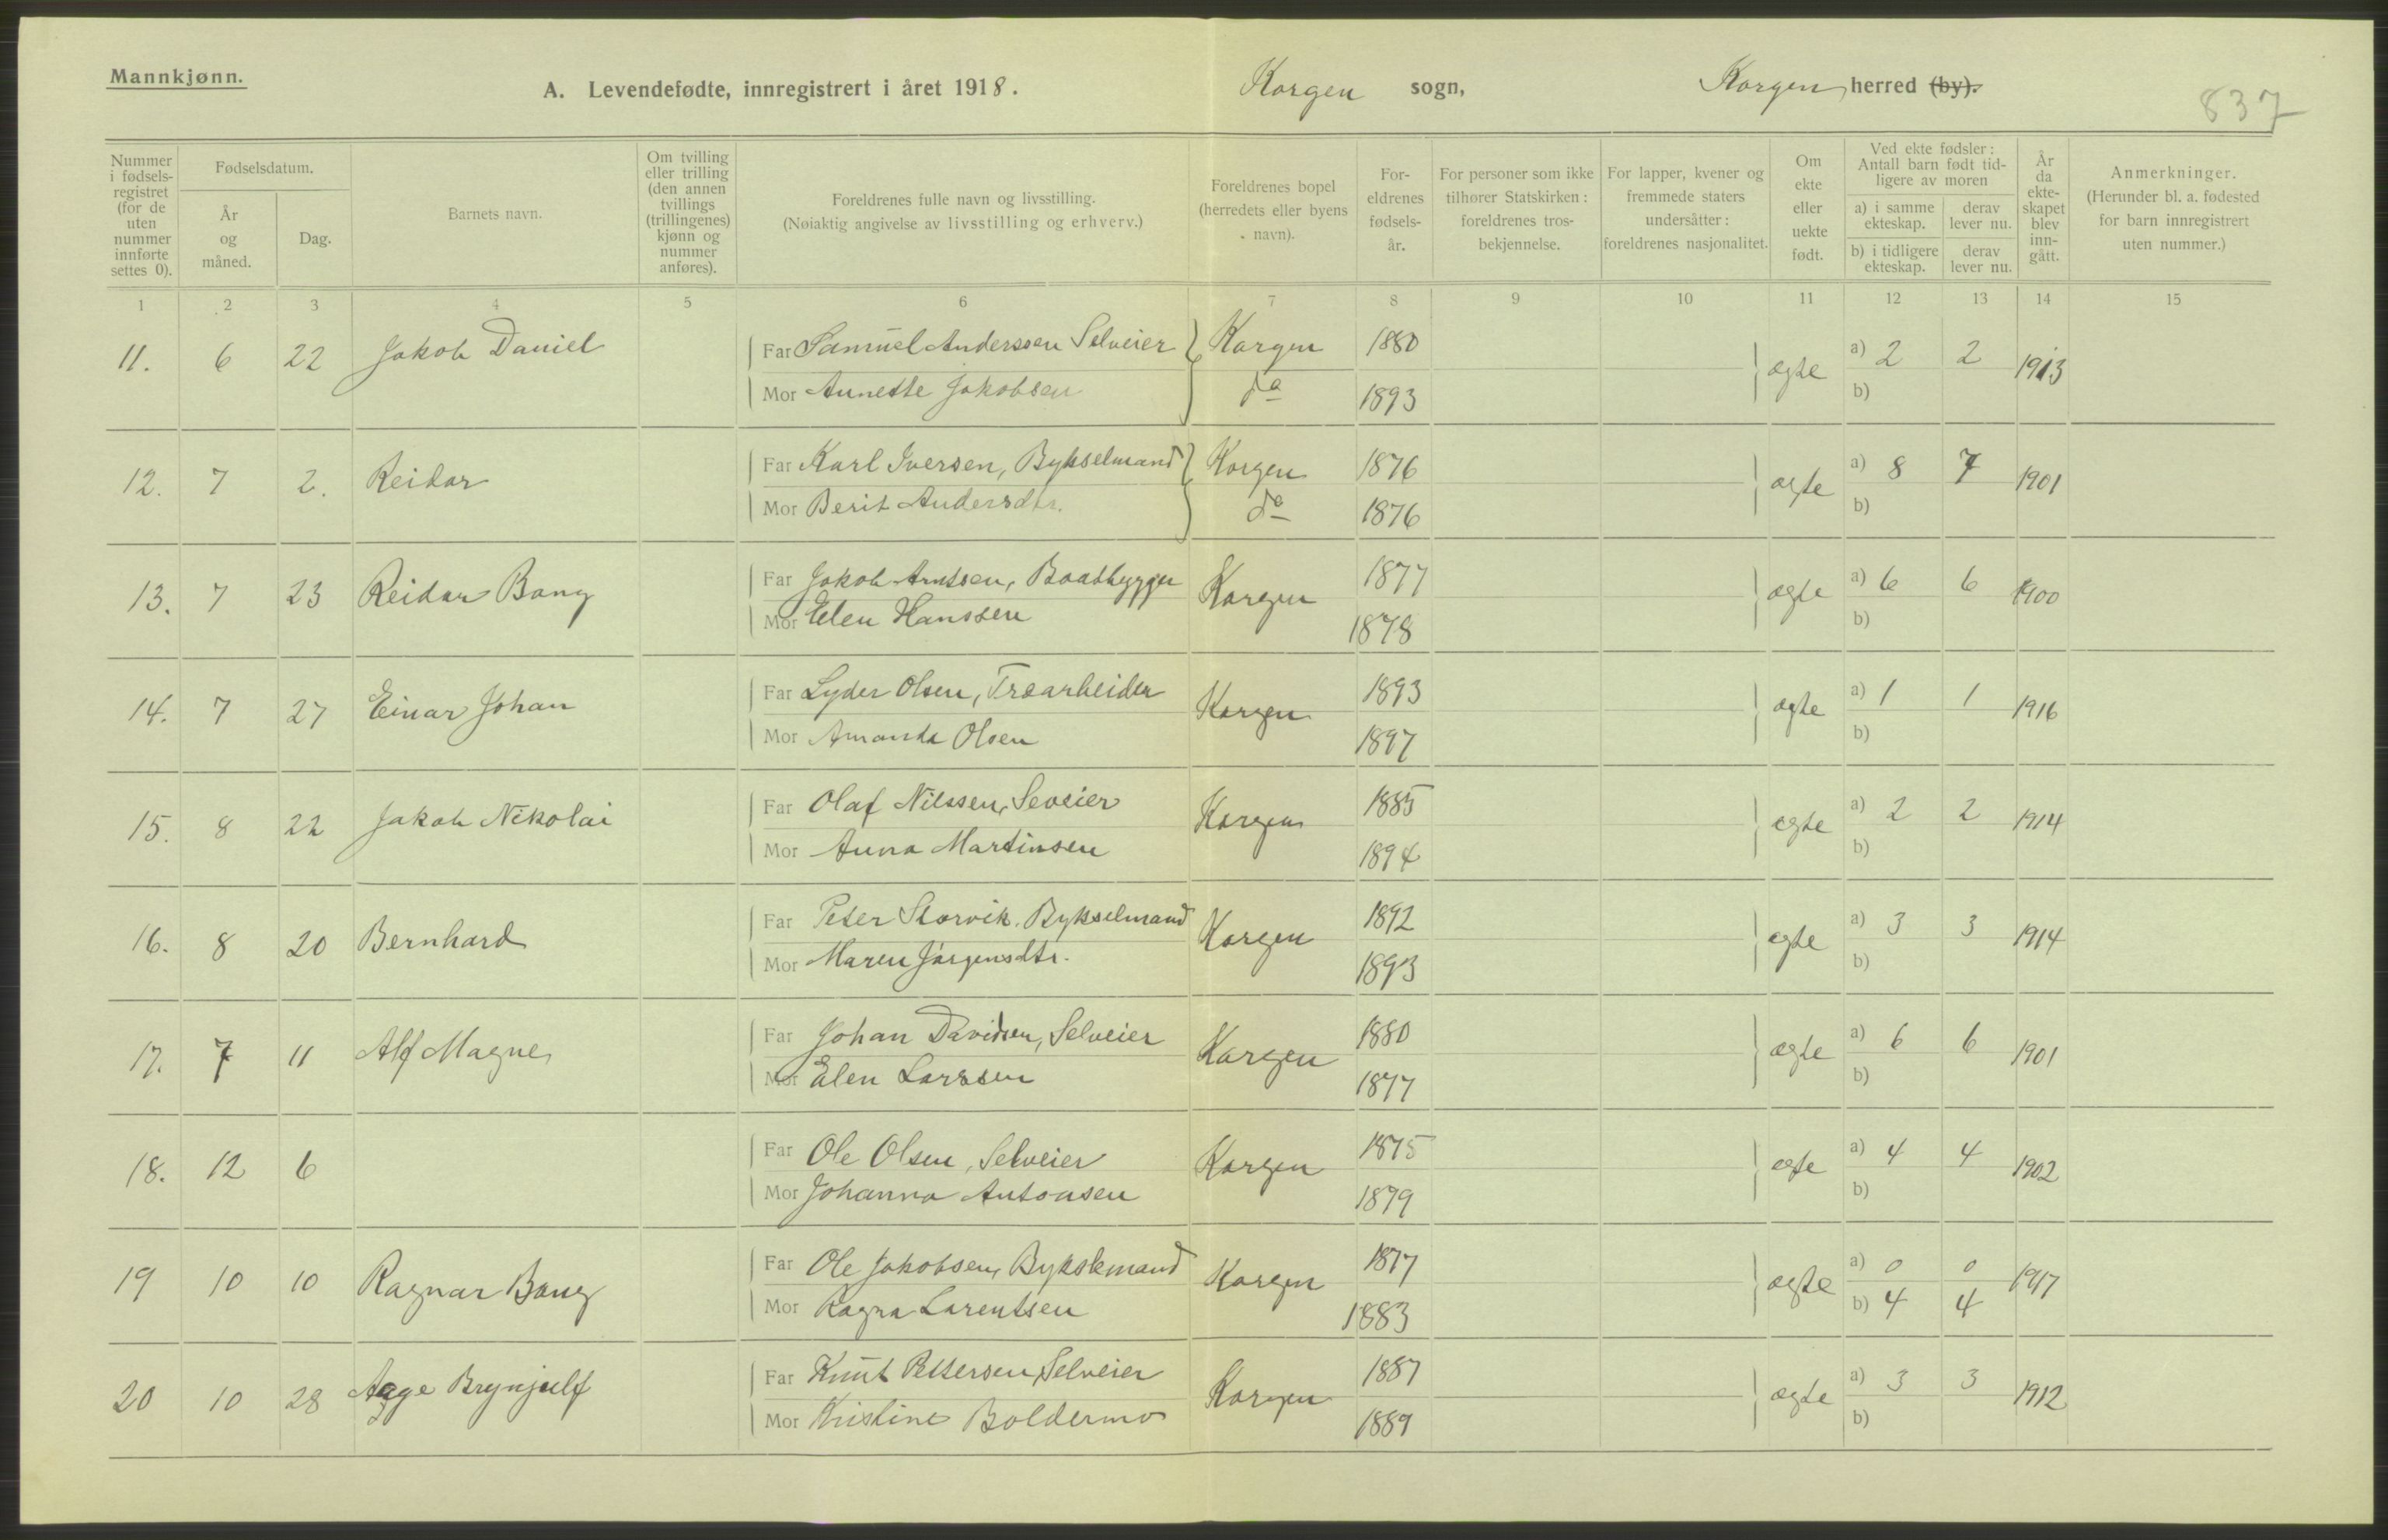 Mannkjønn.
A. Levendefødte, innregistrert i året 1918.
Korgen sogn,
Korgen herred (by).
837
Nummer i fødsels-registret (for de uten nummer innførte settes 0).
Fødselsdatum.
År og måned.
Dag.
Barnets navn.
Om tvilling eller trilling (den annen tvillings (trillingenes) kjønn og nummer anføres).
Foreldrenes fulle navn og livsstilling.
(Nøiaktig angivelse av livsstilling og erhverv.)
Foreldrenes bopel (herredets eller byens navn).
For-eldrenes fødsels-år.
For personer som ikke tilhører Statskirken: foreldrenes tros-bekjennelse.
For lapper, kvener og fremmede staters undersåtter: foreldrenes nasjonalitet.
Om ekte eller uekte født.
Ved ekte fødsler: Antall barn født tid-ligere av moren
a) i samme ekteskap.
derav lever nu.
b) i tidligere ekteskap.
derav lever nu.
År da ekte-skapet blev inn-gått.
Anmerkninger.
(Herunder bl. a. fødested for barn innregistrert uten nummer.)
1 2 3 4 5 6 7 8 9 10 11 12 13 14 15
11. 6 22 Jakob Daniel Far Samuel Anderssen Selveier Korgen 1880 ægte a) 2 2 1913
Mor Annette Jakobsen do 1893 b)
12. 7 2. Reidar Far Karl Iversen, Bykselmand Korgen 1876 ægte a) 8 7 1901
Mor Berit Andersdtr. do 1876 b)
13. 7 23 Reidar Bang Far Jakob Arntsen, Baatbygger Korgen 1877 ægte a) 6 6 1900
Mor Elen Hanssen 1878 b)
14. 7 27 Einar Johan Far Lyder Olsen, Træarbeider Korgen 1893 ægte a) 1 1 1916
Mor Amanda Olsen 1897 b)
15. 8 22 Jakob Nikolai Far Olaf Nilssen, Seveier Korgen 1885 ægte a) 2 2 1914
Mor Anna Martinsen 1894 b)
16. 8 20 Bernhard Far Peter Storvik. Bykselmand Korgen 1892 ægte a) 3 3 1914
Mor Maren Jørgensdtr. 1893 b)
17. 7 11 Alf Magne Far Johan Davidsen, Selveier Korgen 1880 ægte a) 6 6 1901
Mor Elen Larssen 1877 b)
18. 12 6 Far Ole Olsen, Selveier Korgen 1875 ægte a) 4 4 1902
Mor Johanna Antonsen 1879 b)
19 10 10 Ragnar Bang Far Ole Jakobsen, Bykslemand Korgen 1877 ægte a) 0 0 1917
Mor Ragna Larentsen 1883 b) 4 4
20 10 28 Aage Brynjulf Far Knut Pettersen, Selveier Korgen 1887 ægte a) 3 3 1912
Mor Kristine Boldermo 1889 b)